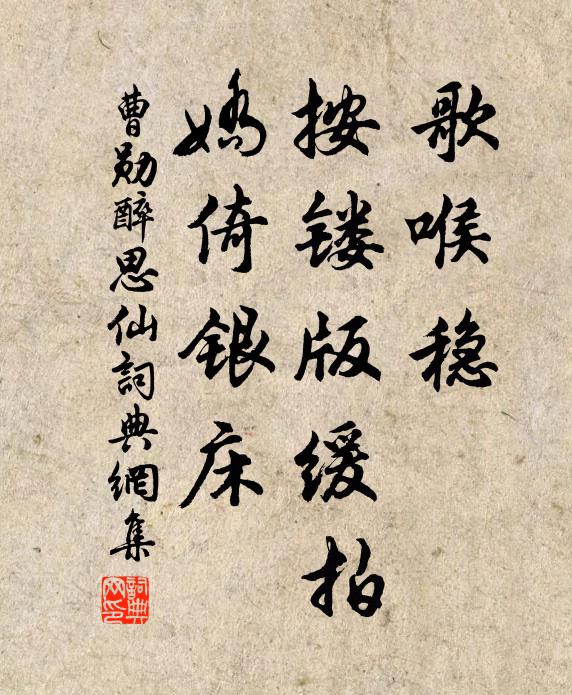 歌喉稳
按镂版缓拍
娇倚银床
曹勋醉思仙詞典網集
詞典网印